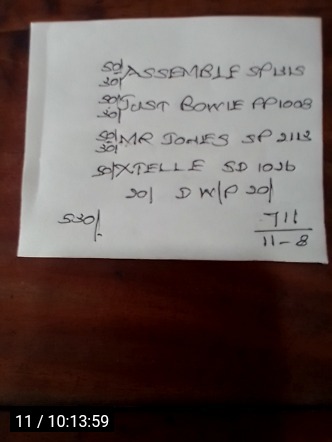 50/ ASSEMBLE SP1315
30/
50/ JUST BOWIE PP1008
30/
50/ MR JONES SP 2112
30/
50/ XTELLE SD 1026
20/ D W/P 20/
530/. 711
11-8
11 / 10:13:59